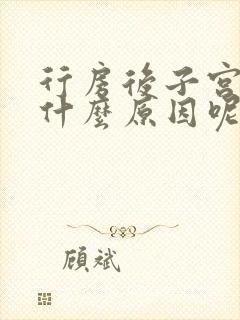 行房後子宮
什麼原因呢
顧斌